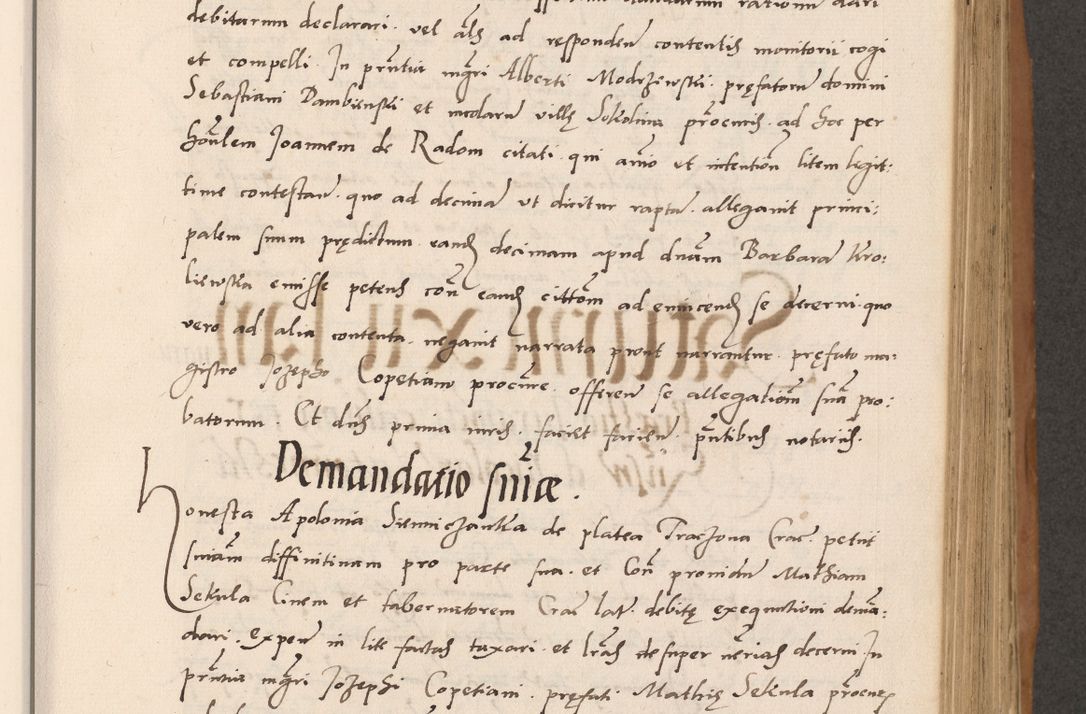 debitarum declarari. vel als ad responden contentis monitorii cogi
et compelli. In prntia mgri Alberti Modrzewski. pręfatorum domini
Sebastiani Dambienski et incolarum villę Sokolina procuris. ad hoc per
honlem Joannem de Radom citati. qui animo et intention litem legit:
time contestan. quo ad decimam ut dicitur raptam. allegavit princi:
palem suum prędictum eand decimam apud dnam Barbaram Kro:
liewska emisse petens con eand cittom ad evincend se decerni. quo
vero ad alia contenta. negavit narrata prout narrantur. pręfato ma:
gistro Jozepho Copetiano procure. offeren se allegationem suam pro:
baturum. Et dns prima iuris. faciet facien. pntibus notariis.
Demandatio sniæ.
Honesta Apolonia Sienniczantka de platea Traczona Crac. petiit
sniam diffinitivam pro parte sua. et Con providum Mathiam
Sekula Civem et tabernatorem Crac latam debitę exequutioni deman:
dari. Expen in lite factas taxari. et lras desuper nerias decerni. In
prntia mgri Jozephi Copetiani. pręfati Mathię Sekula procuris